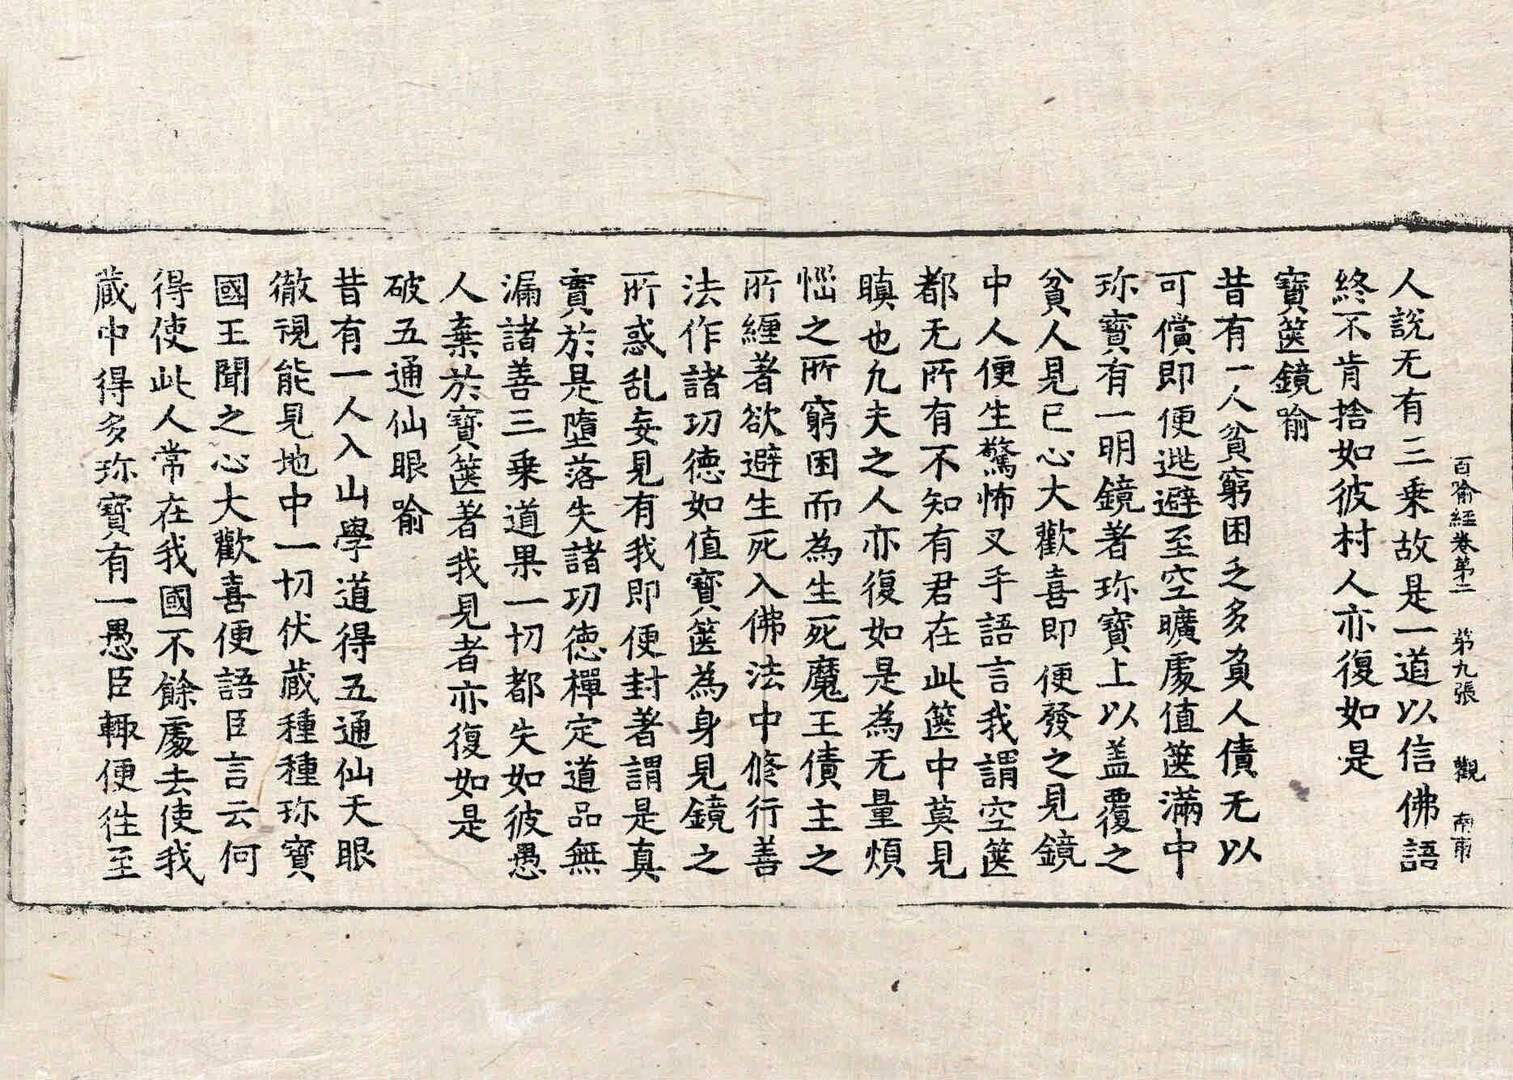 百喻經卷第二　第九張　觀　南甫
人說无有三乗故是一道以信佛語
終不肯捨如彼村人亦復如是
寶篋鏡喻
昔有一人貧窮困乏多負人債无以
可償即便逃避至空曠處值篋滿中
珎寶有一明鏡著珎寶上以盖覆之
貧人見已心大歡喜即便發之見鏡
中人便生驚怖叉手語言我謂空篋
都无所有不知有君在此篋中莫見
瞋也凡夫之人亦復如是為无量煩
惱之所窮困而為生死魔王債主之
所纏著欲避生死入佛法中修行善
法作諸功德如值寶篋為身見鏡之
所惑乱妄見有我即便封著謂是真
實於是墮落失諸功德禪定道品無
漏諸善三乗道果一切都失如彼愚
人棄於寶篋著我見者亦復如是
破五通仙眼喻
昔有一人入山學道得五通仙天眼
徹視能見地中一切伏藏種種珎寶
國王聞之心大歡喜便語臣言云何
得使此人常在我國不餘處去使我
藏中得多珎寶有一愚臣輙便往至